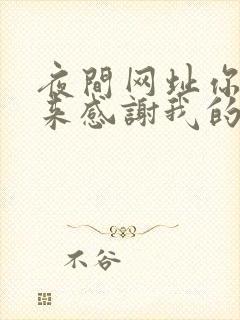 夜間网址你
来感謝我的
不谷